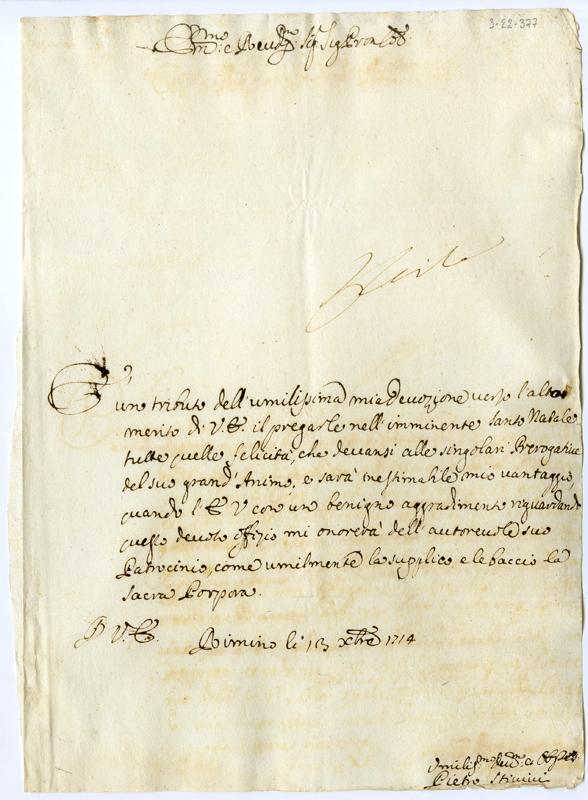 3-22-377
Em.mo e Rev.mo Sig.r Sig.r Pron Col.mo
È un tributo dell'umilissima mia devozione verso l'alto
merito di V.E. il pregarle nell'imminente Santo Natale
tutte quelle felicità, che devansi alle singolari Prerogative
del suo grand'Animo, e sarà inestimabile mio vantaggio,
quando l'E V con un benigno aggradimento reguardando
questo devoto offizio mi onorerà dell'autorevole suo
Patrocinio, come umilmente la supplico e le baccio la
Sacra Porpora.
D V.E. Rimino li 13 Xbre 1714
Umiliss.mo Dev.mo et Obb.
Pietro